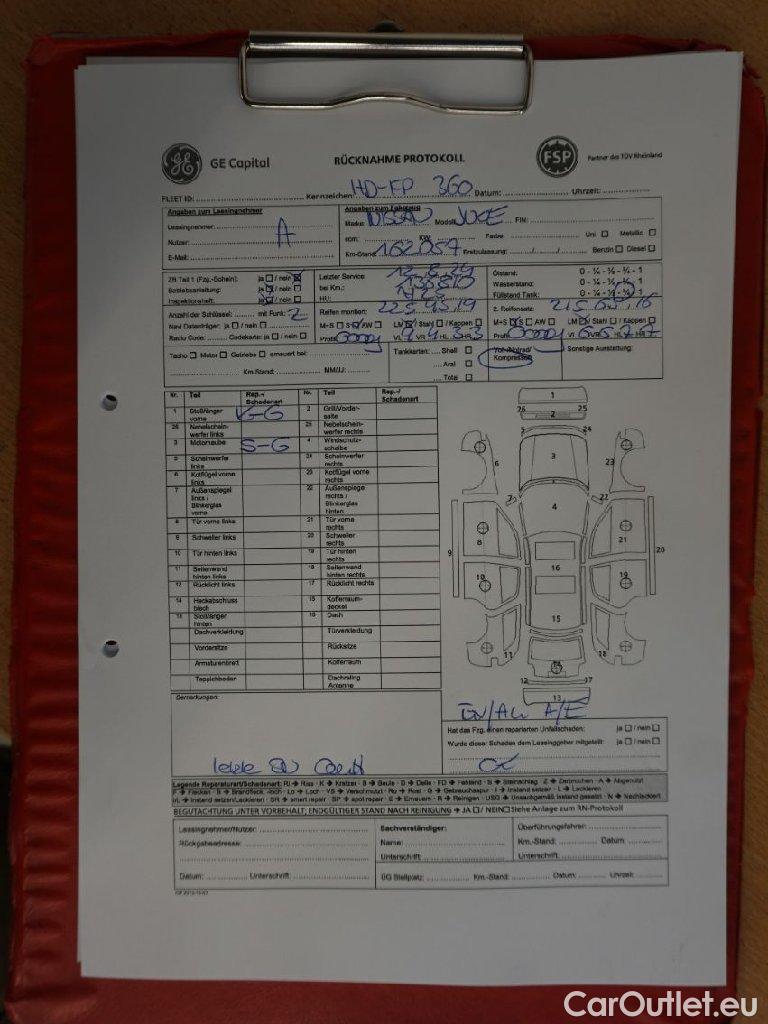 GE Capital
RÜCKNAHME PROTOKOLL
FSP
Partner des TÜV Rheinland
FLEET ID: Kennzeichen: HD-FP 360 Datum: Uhrzeit:
Angaben zum Leasingnehmer
Leasingnehmer:
Nutzer: A
E-Mail:
Angaben zum Fahrzeug
Marke: NISSAN Modell: JUKE FIN:
ccm: KW: Farbe: Uni Metallic
Km-Stand: 162057 Erstzulassung: Benzin Diesel
ZB Teil 1 (Fzg.-Schein): ja / nein
Betriebsanleitung: ja / nein
Inspektionsheft: ja / nein
Letzter Service:
bei Km.:
HU:
Ölstand: 0 - ¼ - ½ - ¾ - 1
Wasserstand: 0 - ¼ - ½ - ¾ - 1
Füllstand Tank: 0 - ¼ - ½ - ¾ - 1
Anzahl der Schlüssel: mit Funk: 2
Navi Datenträger: ja / nein
Radio Code: Codekarte: ja / nein
Reifen montiert: 225.45.19
M+S S AW LM Stahl / Kappen
Profil VL VR HL HR
2. Reifensatz:
M+S S AW LM Stahl / Kappen
Profil VL VR HL HR
Tacho Motor Getriebe erneuert bei:
Km.Stand: NM/IJ:
Tankkarten: Shell
Aral
Total
Vof./Notrad/
Kompressor
Sonstige Ausstattung:
Nr. Teil Rep.-/ Schadenart Nr. Teil Rep.-/ Schadenart
1 Stoßfänger vorne V-G 2 Grill/Vorderseite
26 Nebelscheinwerfer links 25 Nebelscheinwerfer rechts
3 Motorhaube S-G 4 Windschutzscheibe
5 Scheinwerfer links 24 Scheinwerfer rechts
6 Kotflügel vorne links 23 Kotflügel vorne rechts
7 Außenspiegel links / Blinkerglas vorne 22 Außenspiegel rechts / Blinkerglas hinten
8 Tür vorne links 21 Tür vorne rechts
9 Schweller links 20 Schweller rechts
10 Tür hinten links 19 Tür hinten rechts
11 Seitenwand hinten links 18 Seitenwand hinten rechts
12 Rücklicht links 17 Rücklicht rechts
14 Heckabschlussblech 15 Kofferraumdeckel
13 Stoßfänger hinten 16 Dach
Dachverkleidung Türverkleidung
Vordersitze Rücksitze
Armaturenbrett Kofferraum
Teppichboden Dachreling Antenne
Bemerkungen:
1
26 25
2
5 24
6 3 23
7 22
4
8 21
9 20
16
10 19
15
11 18
14
12 17
13
A/E
Hat das Fzg. einen reparierten Unfallschaden: ja / nein
Wurde dieser Schaden dem Leasinggeber mitgeteilt: ja / nein
Legende Reparaturart/Schadenart: RI → Riss - K → Kratzer - B → Beule - D → Delle - FD → Fehlend - S → Steinschlag - Z → Zerbrochen - A → Abgenutzt
F → Flecken - B → Brandfleck/-loch - Lo → Loch - VS → Verschmutzt - Ro → Rost - G → Gebrauchsspur - I → Instand setzen - L → Lackieren
I/L → Instand setzen/Lackieren - SR → smart repair - SP → spot repair - E → Erneuern - R → Reinigen - USG → Unsachgemäß instand gesetzt - N → Nachlackiert
BEGUTACHTUNG UNTER VORBEHALT; ENDGÜLTIGER STAND NACH REINIGUNG → JA / NEIN Siehe Anlage zum RN-Protokoll
Leasingnehmer/Nutzer:
Rückgabeadresse:
Datum: Unterschrift:
Sachverständiger:
Name:
Unterschrift
Überführungsfahrer:
Km.-Stand: Datum
Unterschrift:
ÜG Stellplatz: Km.-Stand: Datum: Uhrzeit:
CarOutlet.eu